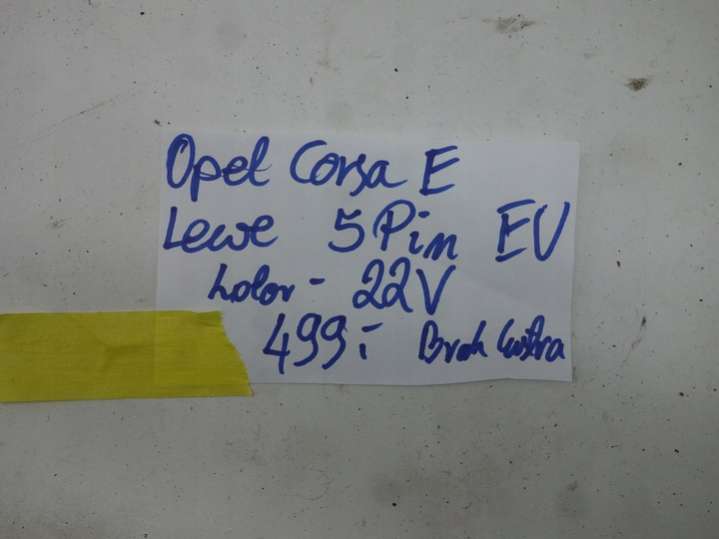 Opel Corsa E
Lewe 5Pin EU
kolor - 22V
499:- Brak lustra